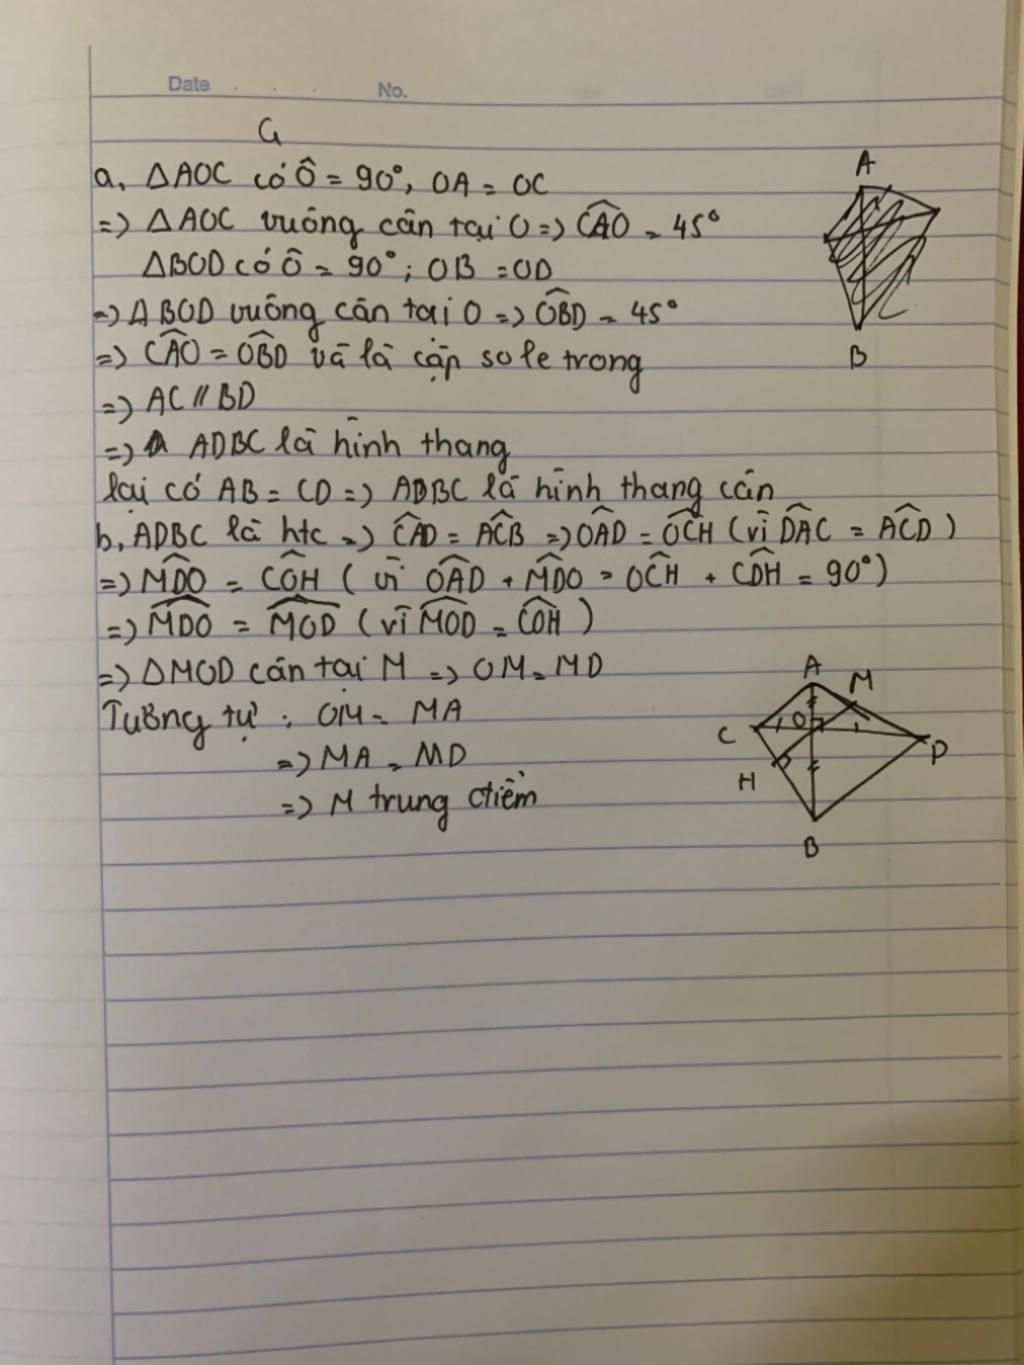 Date
No.
G
a, ΔAOC có Ô = 90°, OA = OC
=> ΔAOC vuông cân tại O => CÂO = 45°
ΔBOD có Ô = 90°; OB = OD
=> ΔBOD vuông cân tại O => OBD = 45°
=> CAO = OBD và là cặp so le trong
=> AC // BD
=> ADBC là hình thang
lại có AB = CD => ADBC là hình thang cân
b, ADBC là htc => CAD = ACB => OAD = OCH (vì DAC = ACD)
=> MDO = COH (vì OAD + MDO = OCH + CDH = 90°)
=> MDO = MOD (vì MOD = COH)
=> ΔMOD cân tại M => OM = MD
Tương tự: OM = MA
=> MA = MD
=> M trung điểm
A
B
A
M
C
O
D
H
B